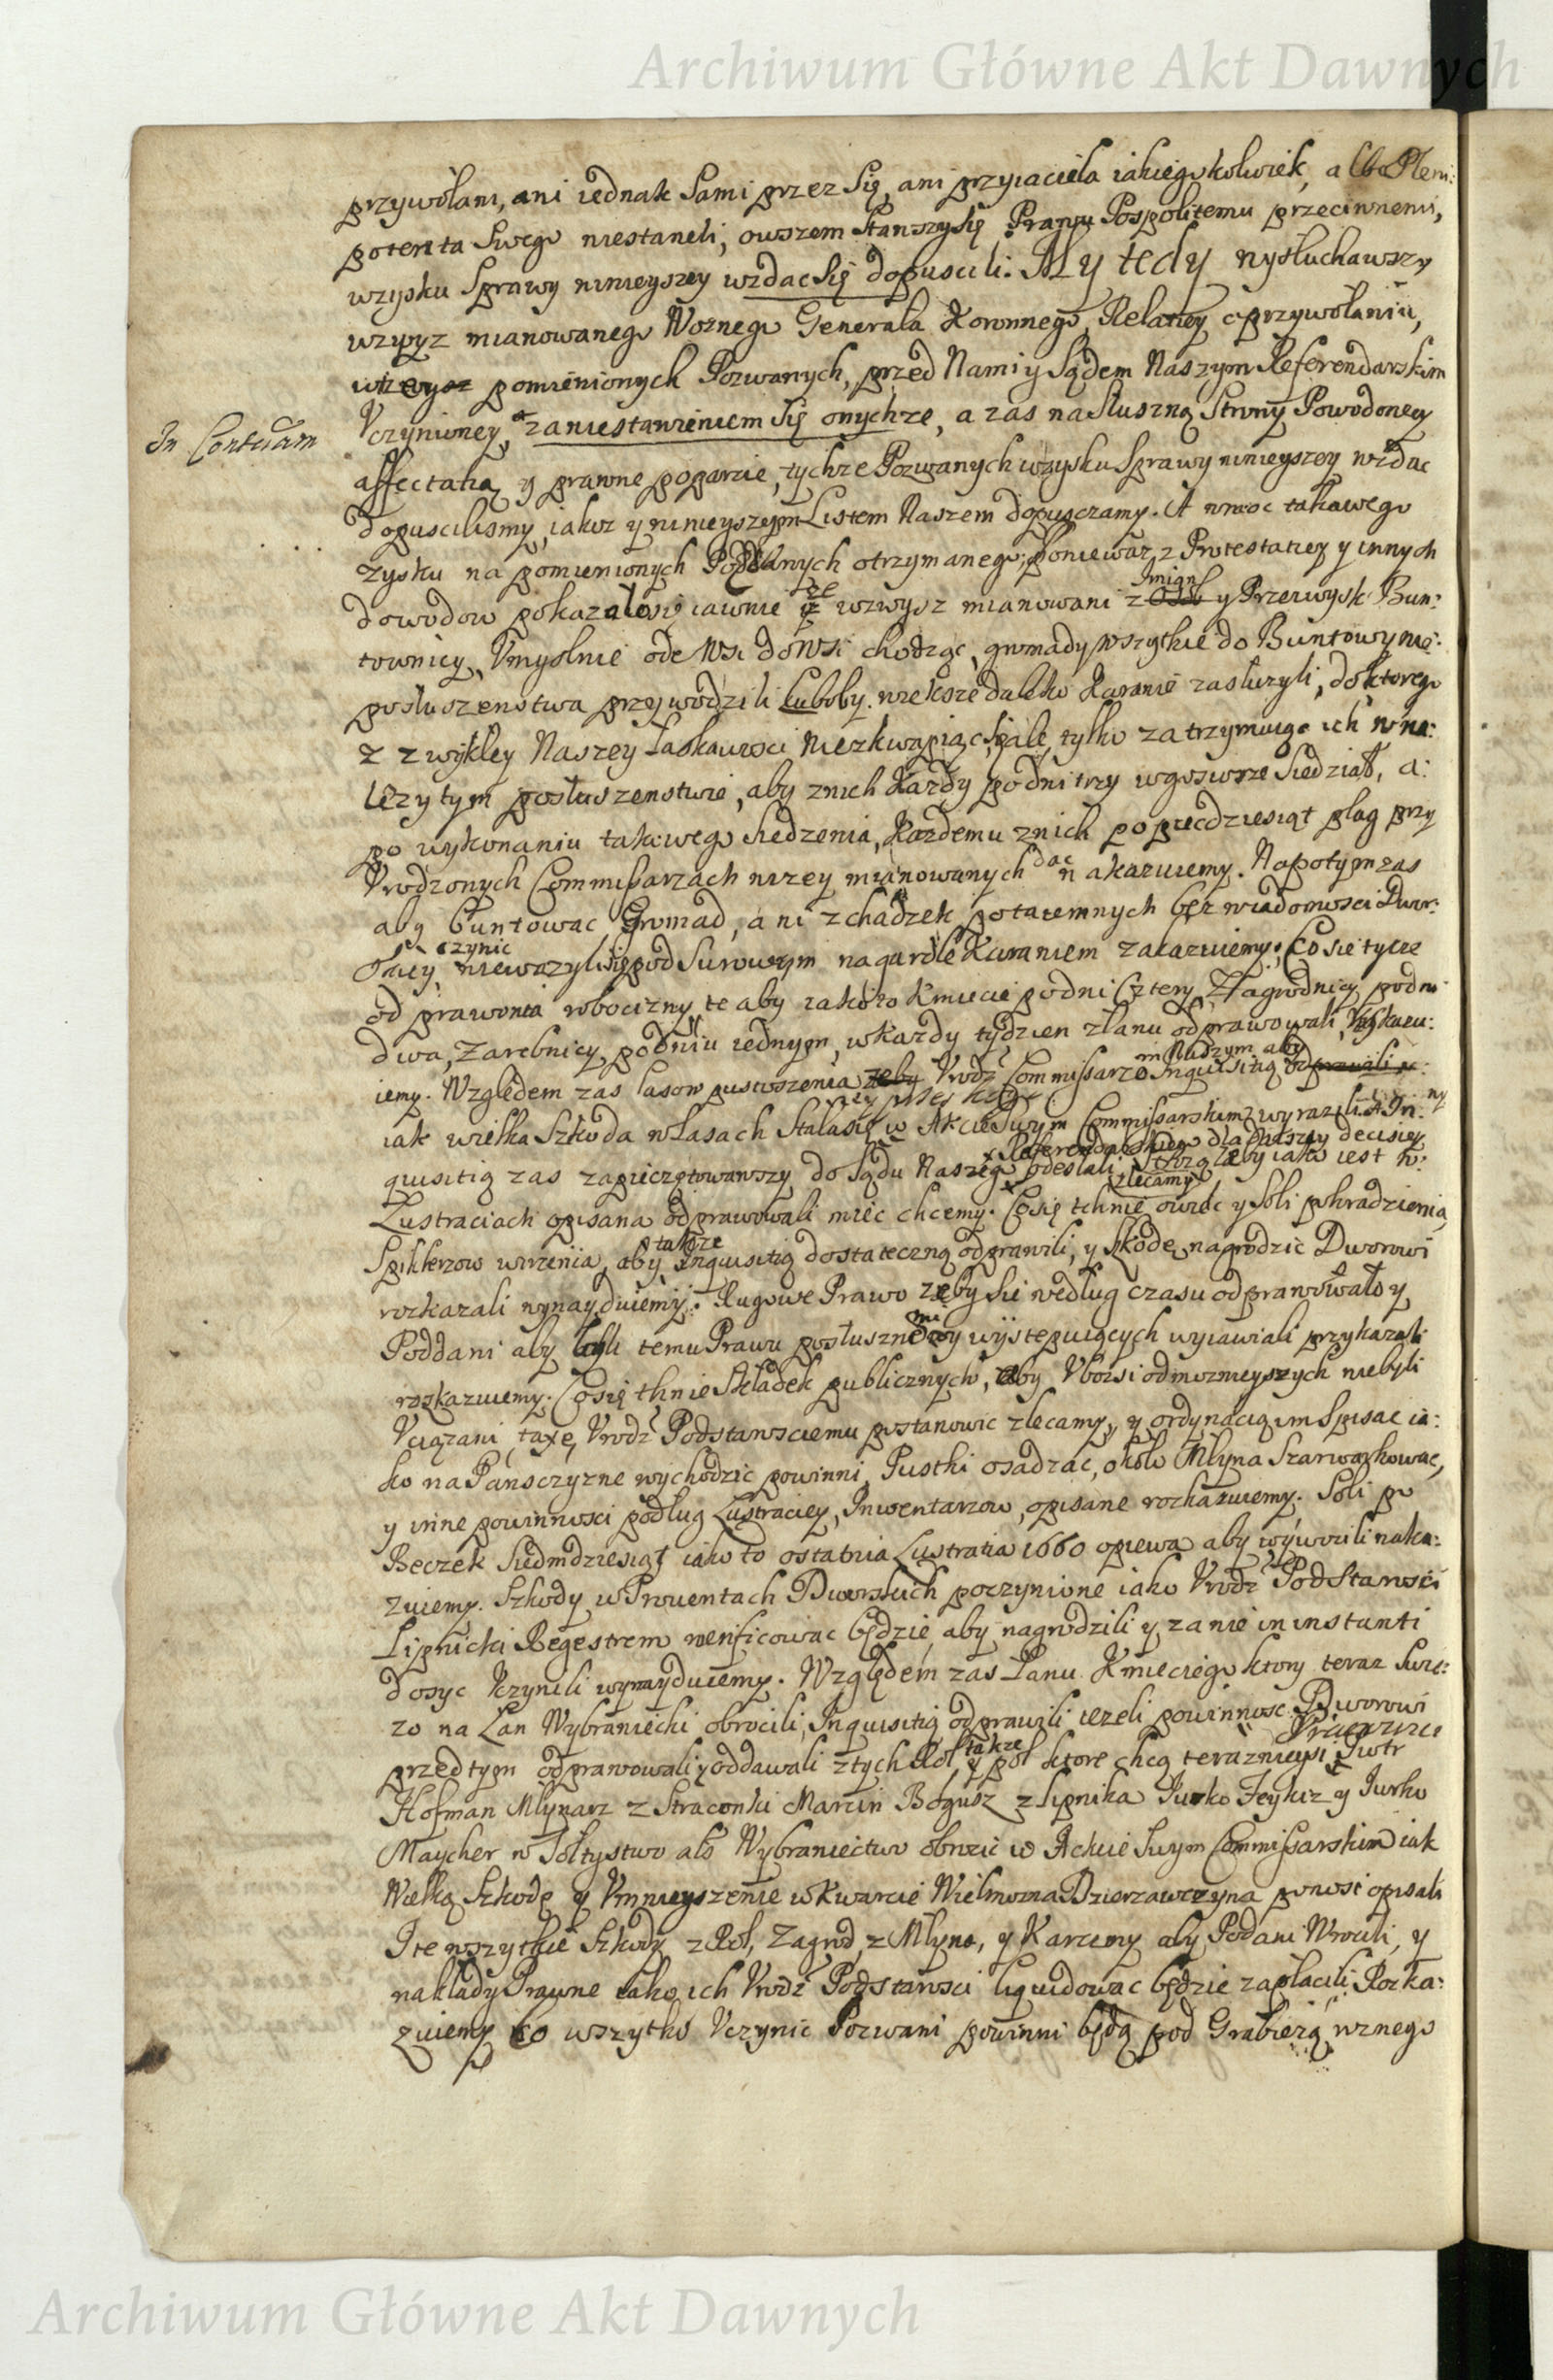 Archiwum Główne Akt Dawnych
przywołani, ani iednak sami przez się, ani przyiaciela iakiegokolwiek, albo Pleni:
potenta swego niestaneli, owszem stawszysię Prawu Pospolitemu przeciwnemi,
wzysku sprawy ninieyszey wzdac się dopuscili. My tedy wysłuchawszy
wzwyz mianowanego Woznego Generała Koronnego, Relatiey o przywołaniu,
wzwysz pomienionych Pozwanych, przed Nami y Sądem Naszym Referendarskim
In Contuam
Vczynioney, zaniestawieniem się onychze, a zas na słuszną Strony Powodowey
affectatią y prawne poparcie, tychze Pozwanych wzysku sprawy ninieyszey wzdac
dopuscilismy, iakoz y ninieyszym Listem Naszem dopusczamy. A wmoc takowego
zysku na pomienionych Poddanych otrzymanego, poniewaz z Protestatiey y innych
dowodow pokazało się iawnie ze wzwysz mianowani z Imion y Przezwysk Bun:
townicy, Vmyslnie ode Wsi do Wsi chodząc, gromady wszytkie do Buntow y nie:
posłuszenstwa przywodzili luboby wieksze daleko Karanie zasłuzyli, do ktorego
z zwykłey Naszey Łaskawosci niezkwapiąc się, ale tylko zatrzymuiąc ich w na:
lezytym posłuszenstwie, aby znich Kazdy podni trzy wgosiorze siedział, a:
po wykonaniu takowego siedzenia, Kazdemu znich po piecdziesiąt plag przy
Vrodzonych Commissarzach nizey mianowanych dac nakazuiemy. Napotym zas
aby Buntowac Gromad, ani zchadzek potaiemnych bez wiadomosci Dwor:
skiey czynic niewazyli się pod surowym na gardle Karaniem zakazuiemy. Co sie tycze
odprawowania robocizny, te aby iakoto Kmiecie podni Cztery, Zagrodnicy podni
dwa, Zarebnicy, podniu iednym, wkazdy tydzien złanu odprawowali, Nakazu:
iemy. Względem zas Lasow pustoszenia zeby Vrodz Commissarze Inquisitią odprawili
in Naszym aby
iak wielka szkoda w Lasach stała się w Akcie swym Commissarskim wyrazili. A In:
quisitią zas zapieczętowawszy do Sądu Naszego Referendarskiego dla Naszey decisiey odesłali zlecamy. Strozą zeby iako iest w:
Lustraciach opisana odprawowali miec chcemy. Co się tchnie owiec y Soli pokradzienia,
Spiklerzow aby takze Inquisitią dostateczną odprawili, y szkodę nagrodzic Dworowi
rozkazali wynayduiemy. Rugowe Prawo zeby sie według czasu odprawowało y
Poddani aby byli temu Prawu posłuszni wystepuiących wyiawiali przykazali
rozkazuiemy. Co się tknie Składek publicznych, aby Vbozsi od moznieyszych niebyli
Vciązani, taxę, Vrodz Podstarosciemu postanowic zlecamy, y ordynacią im spisac ia:
ko na Pansczyzne wychodzic powinni, Pustki osadzac, około Młyna Szarwarkowac,
y inne powinnosci podług Lustraciey, Inwentarzow, opisane rozkazuiemy. Soli po
Beczek siedmdziesiąt iako to ostatnia Lustratia 1660 opiewa aby wywozili naka:
zuiemy. Szkody w Prouentach Dworskich poczynione iako Vrodz Podstarosci
Lipnicki Regestrem verificowac będzie, aby nagrodzili y zanie in instanti
dosyc Vczynili wynayduiemy. Względem zas Łanu Kmieciego ktory teraz swie:
zo na Łan Wybraniecki obrocili, Inquisitią odprawili iezeli powinnosc Dworowi
przedtym odprawowali y oddawali ztych Rol, takze y pol ktore chcą terazniejsi Piotr
Hofman Młynarz z Straconki Marcin Bogusz z Lipnika Jurko Feykiz y Jurko
Maycher w Sołtystwo abo Wybraniectwo obrocic w Ackcie swym Commissarskim iak
Wielką szkodę y Vmnieyszenie w Kwarcie Wielmozna Dzierzawczyna ponosi opisali
Ite wszytkie szkody z Rol, Zagrod, z Młyna, y Karczmy aby Podani Wrocili, y
nakłady Prawne iako ich Vrodz Podstarosci liquidowac będzie zapłacili Rozka:
zuiemy co wszytko Vczynic Pozwani powinni będą pod Grabieżą wznego
Archiwum Główne Akt Dawnych